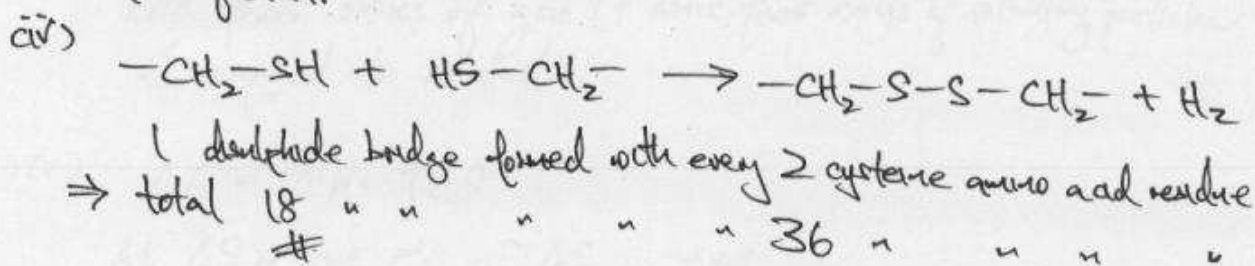 iv)
—CH₂—SH + HS—CH₂— ⟶ —CH₂—S—S—CH₂— + H₂
1 disulphide bridge formed with every 2 cysteine amino acid residue
⇒ total 18 " " " " " 36 " " " "